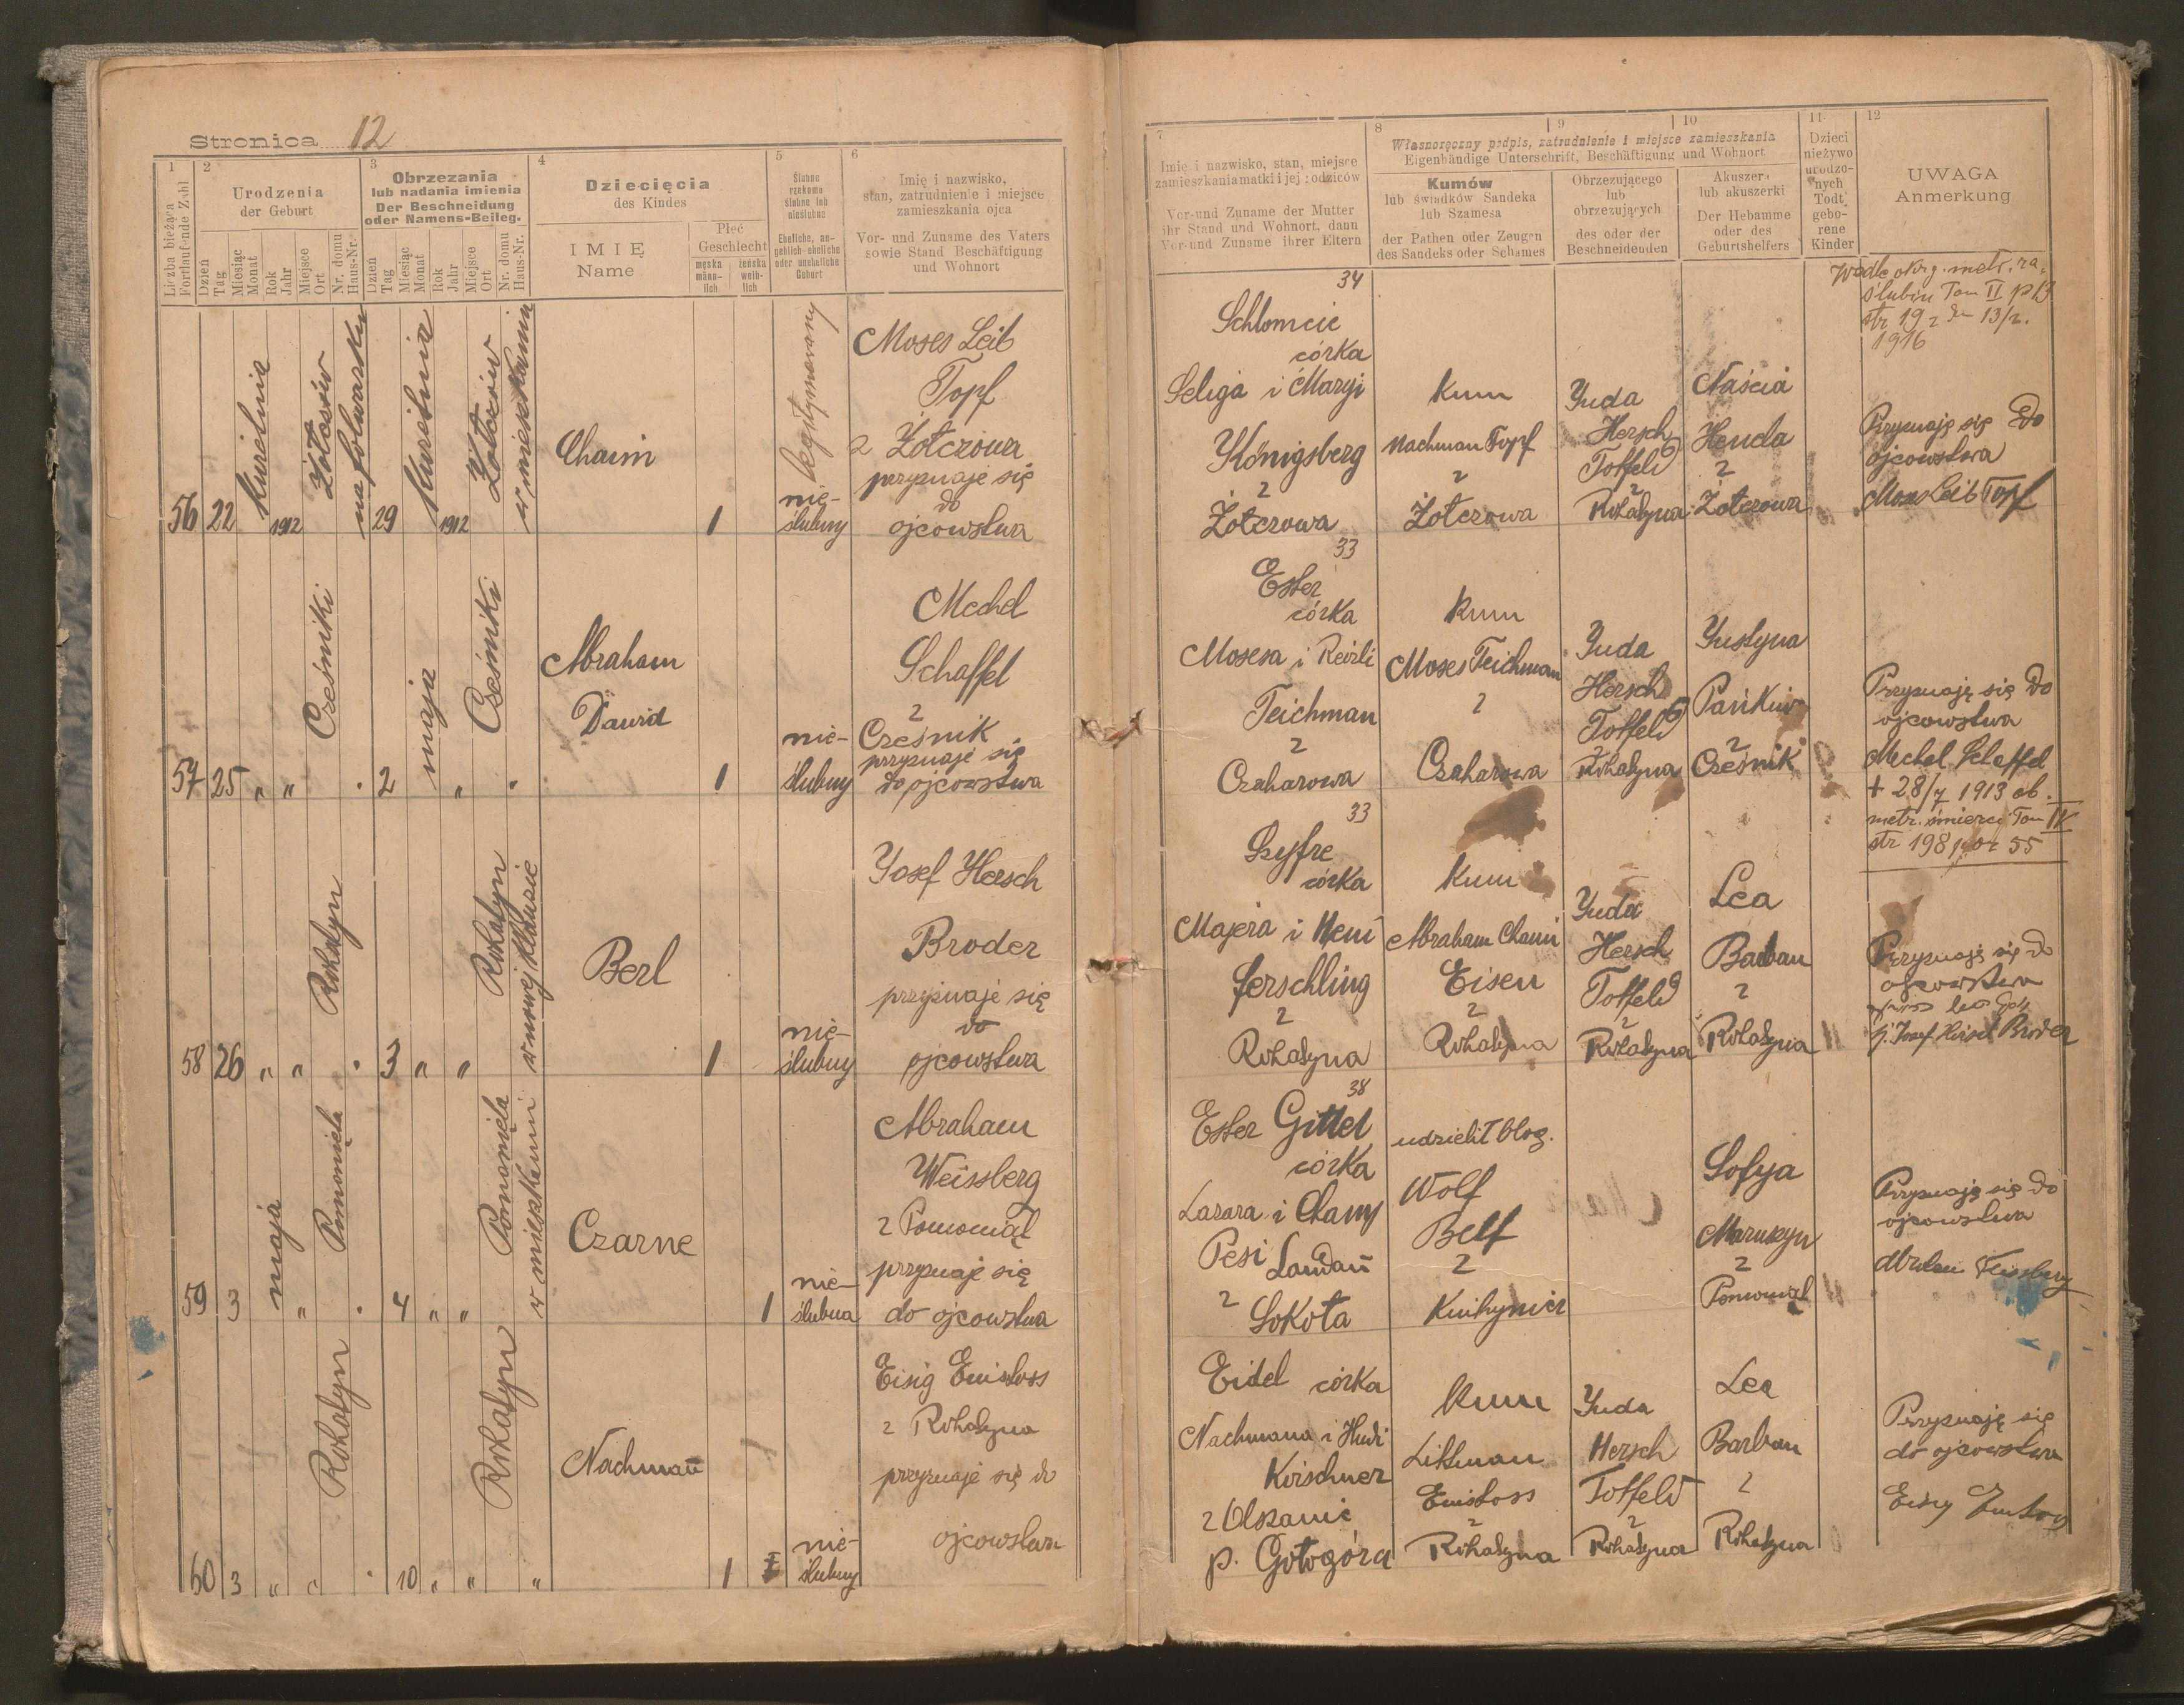 Stronica 12
1
Liczba bieżąca
Fortlaufende Zahl
2
Urodzenia
der Geburt
Dzień
Tag
Miesiąc
Monat
Rok
Jahr
Miejsce
Ort
Nr. domu
Haus-Nr.
3
Obrzezania
lub nadania imienia
Der Beschneidung
oder Namens-Beileg.
Dzień
Tag
Miesiąc
Monat
Rok
Jahr
Miejsce
Ort
Nr. domu
Haus-Nr.
4
Dziecięcia
des Kindes
IMIĘ
Name
Płeć
Geschlecht
męska
männ-
lich
żeńska
weib-
lich
5
Ślubne
rzekomo
ślubne lub
nieślubne
Eheliche, an-
geblich-eheliche
oder uneheliche
Geburt
6
Imię i nazwisko,
stan, zatrudnienie i miejsce
zamieszkania ojca
Vor- und Zuname des Vaters
sowie Stand Beschäftigung
und Wohnort
7
Imię i nazwisko, stan, miejsce
zamieszkania matki i jej rodziców
Vor-und Zuname der Mutter
ihr Stand und Wohnort, dann
Vor-und Zuname ihrer Eltern
8
9
10
Własnoręczny podpis, zatrudnienie i miejsce zamieszkania
Eigenhändige Unterschrift, Beschäftigung und Wohnort
Kumów
lub świadków Sandeka
lub Szamesa
der Pathen oder Zeugen
des Sandeks oder Schames
Obrzezującego
lub
obrzezujących
des oder der
Beschneidenden
Akuszera
lub akuszerki
Der Hebamme
oder des
Geburtshelfers
11
Dzieci
nieżywo
urodzo-
nych
Todt
gebo-
rene
Kinder
12
UWAGA
Anmerkung
56 22
Kwietnia
1912
Żołczów
na folwarku
29
Kwietnia
1912
Żołczów
w mieszkaniu
Chaim
1
legitymowany
nie-
ślubny
Moses Leib
Topf
z Żołczowa
przyznaje się
do
ojcowstwa
34
Schlomcie
córka
Seliga i Maryi
Königsberg
z
Żołczowa
Kum
Nachman Topf
z
Żołczowa
Yuda
Hersch
Toffeld
z
Rohatyna
Naścia
Henda
z
Żołczowa
str 19
13/2.
1916
Przyznaję się do
ojcowstwa
Moses Leib Topf
57 25 " "
Cześniki
2
maja
"
Cześniki
"
Abraham
Dawid
1
nie-
ślubny
Mechel
Schaffel
z
Cześnik
przyznaje się
do ojcowstwa
33
Ester
córka
Mosesa i Reizli
Teichman
z
Czaharowa
Kum
Moses Teichman
z
Czaharowa
Yuda
Hersch
Toffeld
Rohatyna
Yustyna
Pańkiw
z
Cześnik
Przyznaję się do
ojcowstwa
Mechel Schaffel
+ 28/7 1913 ob.
metr. śmierci Tom IV
str 198 poz 55
58 26 " "
Rohatyn
3 " "
Rohatyn
Berl
1
nie-
ślubny
Yosef Hersch
Broder
przyznaje się
do
ojcowstwa
33
Szyfre
córka
Majera i Heni
Ferschling
z
Rohatyna
Kum
Abraham Chaim
Eisen
z
Rohatyna
Yuda
Hersch
Toffeld
z
Rohatyna
Lea
Barban
z
Rohatyna
Przyznaję się do
ojcowstwa
59 3
maja
"
Pomonięta
4 " "
Pomonięta
w mieszkaniu
Czarne
1
nie-
ślubna
Abraham
Weissberg
z Pomoniąt
przyznaje się
do ojcowstwa
38
Ester Gittel
córka
Lazara i Chany
Pesi Landau
z
Sokoła
udzielił błog.
Wolf
Belf
z
Knihynicz
Sofya
z
Pomoniąt
Przyznaję się do
ojcowstwa
60 3 " "
Rohatyn
10 " "
Rohatyn
"
Nachman
1
nie-
ślubny
Eisig
z Rohatyna
przyznaje się do
ojcowstwa
Eidel córka
Nachmana i Hudi
Koischner
z Olszanic
p. Gołogóra
Kum
Littman
z
Rohatyna
Yuda
Hersch
Toffeld
z
Rohatyna
Lea
Barban
z
Rohatyna
Przyznaję się
do ojcowstwa